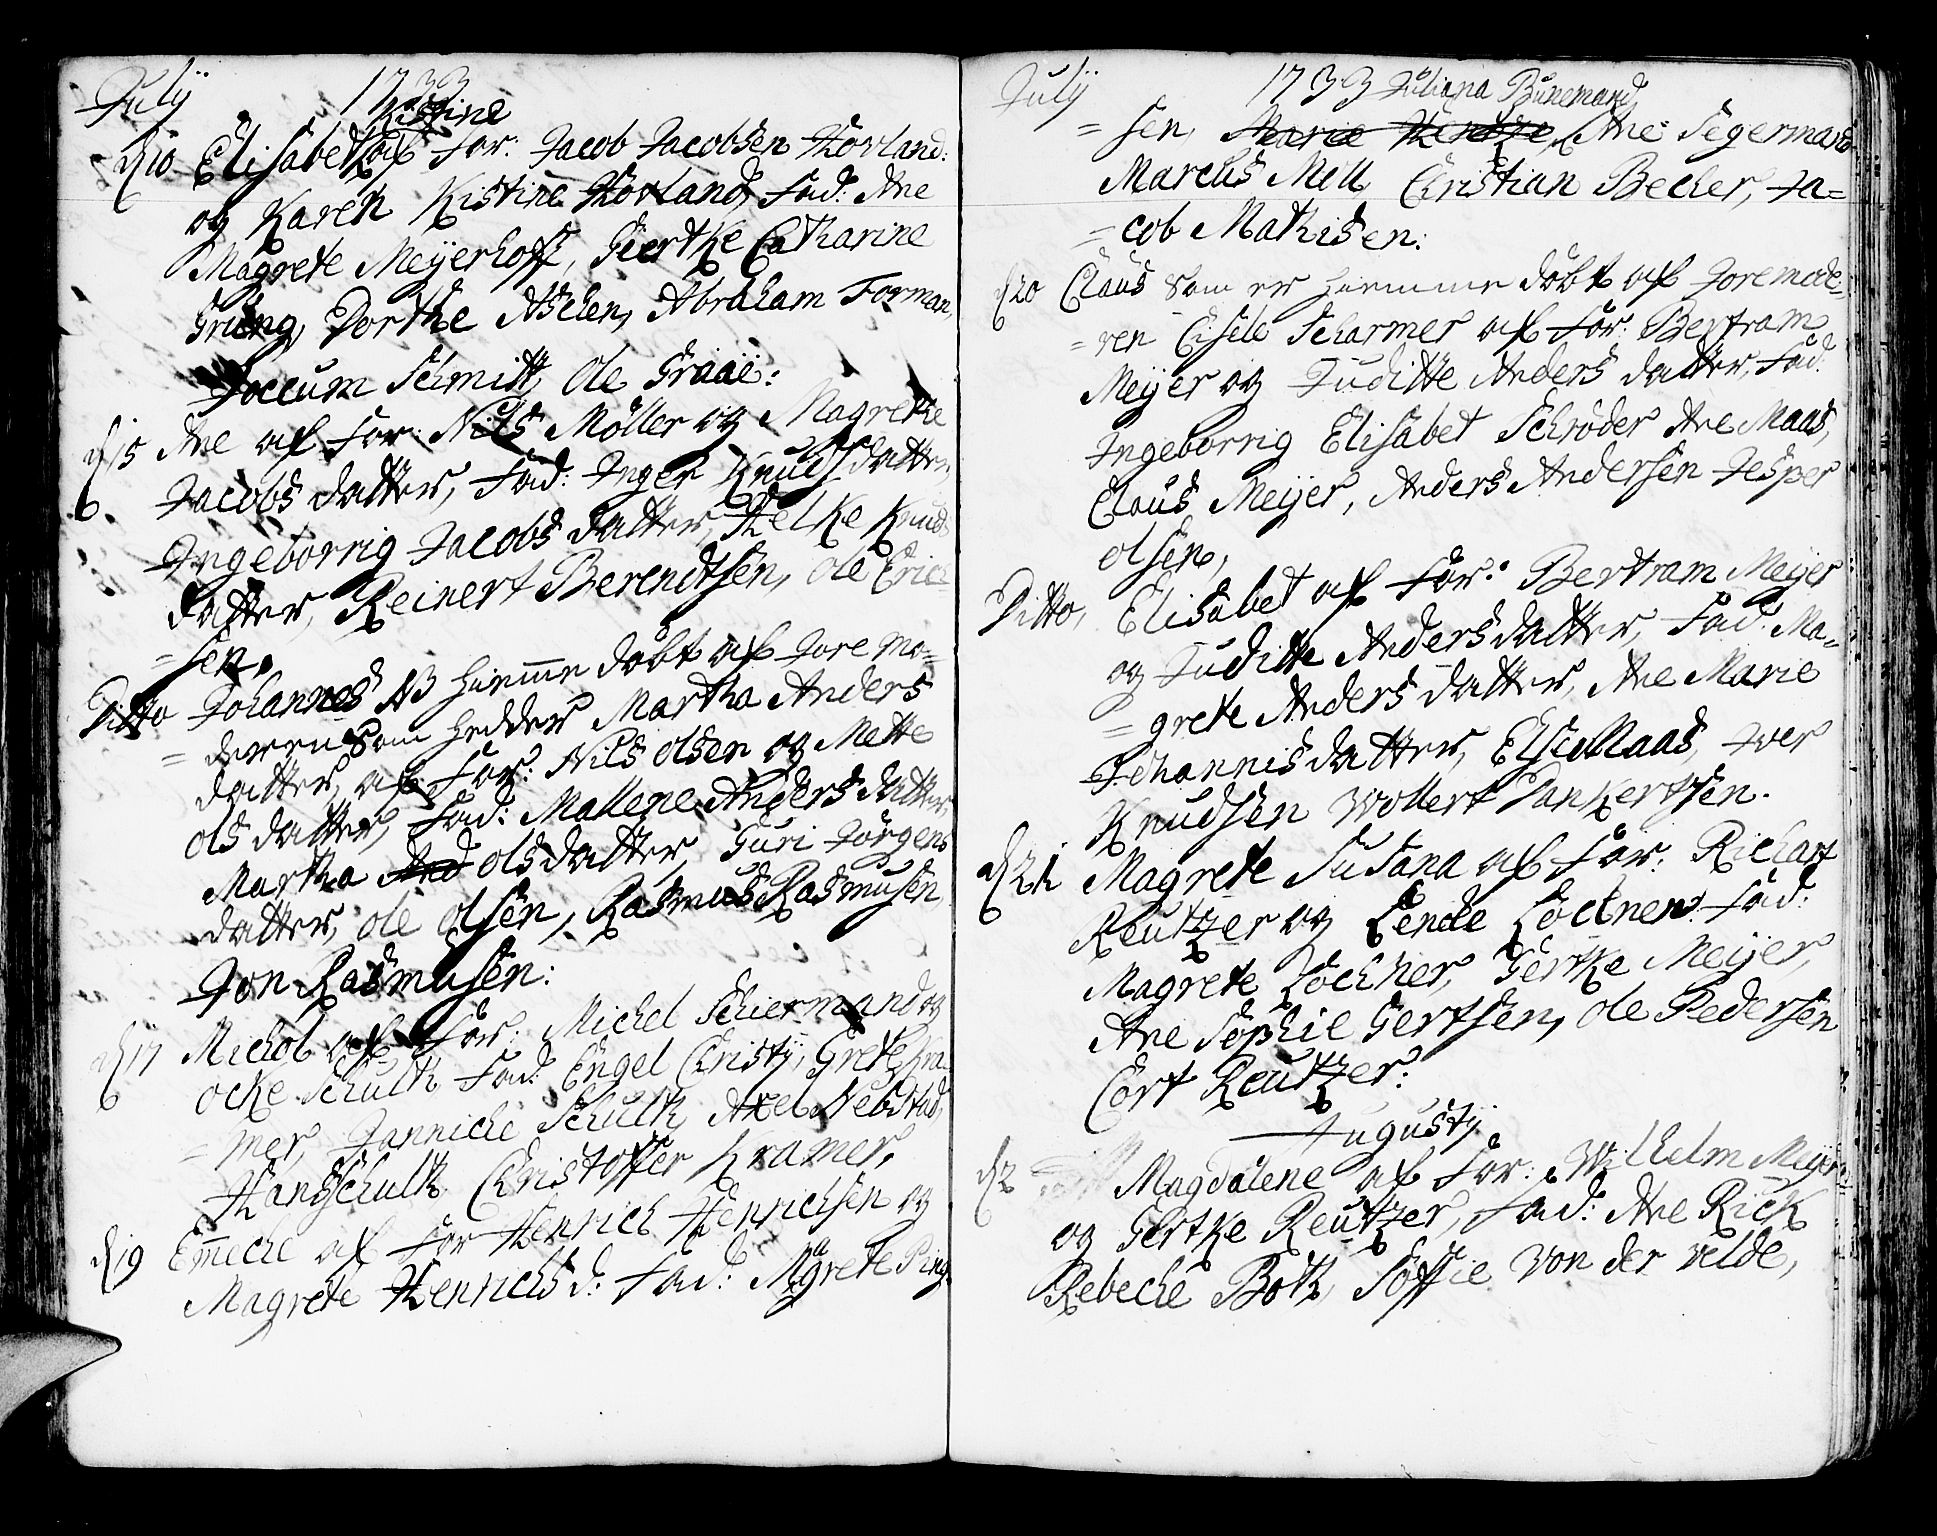 Julÿ 1733
Kistine
d 10 Elisabet af For: Jacob Jacobsen Hovland:
og Karen Kistine Hovland, Fad: Ane
Magrete Meÿerhoff, Giertke Catharine
Gröng, Dorthe Aschen, Abraham Forman,
Joccum Schmitt, Ole Graaë:
d 15 Ane af For: Nils Möller og Magrethe
Jacobs datter, Fad: Inger Knuds datter
Ingeborrig Jacobs datter, Helke Knuds
datter, Reinert Berendtsen, Ole Erich
= sen.
Ditto Johannes NB hiemme döbt af Jore mo=
= deren som hedder Martha Anders
datter, af For: Nils Olsen og Mette
Ols datter, Fad: Mallene Anders datter
Martha And Olsdatter, Guri Jörgens
datter, Ole Olsen, Rasmus Rasmusen,
Jon Rasmusen:
d 17 Michel af For: Michel Schiermand og
Ocke Schult, Fad: Engel Christÿ, Grete Kra
= mer, Janniche Schult, Axel Nebstad,
Hans Schult, Christoffer Kramer,
d 19 Emeche af For Henrich Henrichsen og
Magrete Henrichs d: Fad: Magrete Ping
Julÿ 1733 Juliana Bunemand
= sen, Marie Hentze, Ane Segermand
Marcus Mell, Christian Becher, Ja=
= cob Mathisen:
d 20 Claus som er hiemme döbt af Joremod=
= ren Cisele Scharmer af For: Bertram
Meÿer og Juditte Anders datter, Fad:
Ingeborrig Elisabet Schröder Ane Maas,
Claus Meÿer, Anders Andersen Jesper
Olsen,
Ditto, Elisabet af For: Bertram Meÿer
og Juditte Anders datter, Fad: Ma=
= grete Anders datter, Ane Marie
Johannis datter, Else Maas, Iver
Knudsen Wollert Dankertsen.
d 21 Magrete Susana af For: Richart
Reutzer og Lende Lochner Fad:
Magrete Lochner, Gertke Meÿer,
Ane Sophie Gertsen, Ole Pedersen
Cort Reutzer:
Augustÿ
d 2 Magdalene af For: Wilhelm Meÿer
og Gertke Reutzer, Fad: Ane Rick
Rebeche Both, Soffie von der velde,